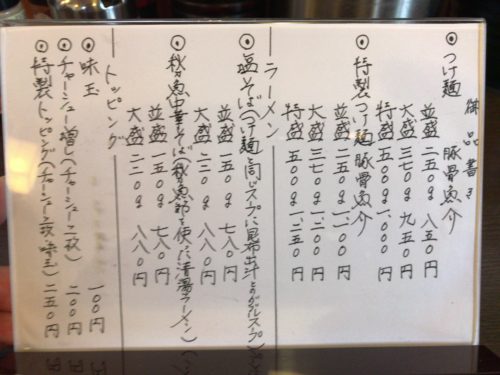 御品書き
◎つけ麺 豚骨魚介
並盛 二五〇g 八五〇円
大盛 三七〇g 九五〇円
特盛 五〇〇g 一、〇〇〇円
◎特製つけ麺 豚骨魚介
並盛 二五〇g 一、一〇〇円
大盛 三七〇g 一、二〇〇円
特盛 五〇〇g 一、二五〇円
ラーメン
◎塩そば(つけ麺と同じスープに昆布出汁とのWスープ)
並盛 一五〇g 七八〇円
大盛 二二〇g 八八〇円
◎秋刀魚中華そば(秋刀魚節を使った清湯ラーメン)
並盛 一五〇g 七八〇円
大盛 二二〇g 八八〇円
トッピング
◎味玉 一〇〇円
◎チャーシュー増し(チャーシュー二枚) 二〇〇円
◎特製トッピング(チャーシュー二枚、味玉) 二五〇円